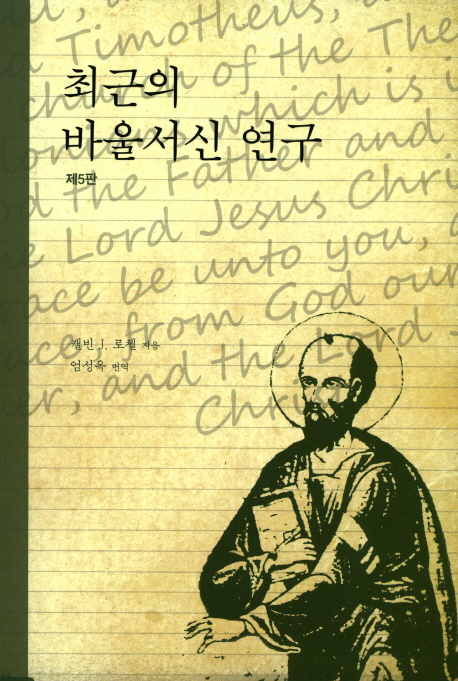 a Timotheus,
church of the The
which is i
God the Father and
the Lord Jesus Chri
race be unto you,
ace, from God our
er, and the Lord
Christ
최근의
바울서신 연구
제5판
캘빈 J. 로첼 지음
엄성옥 번역